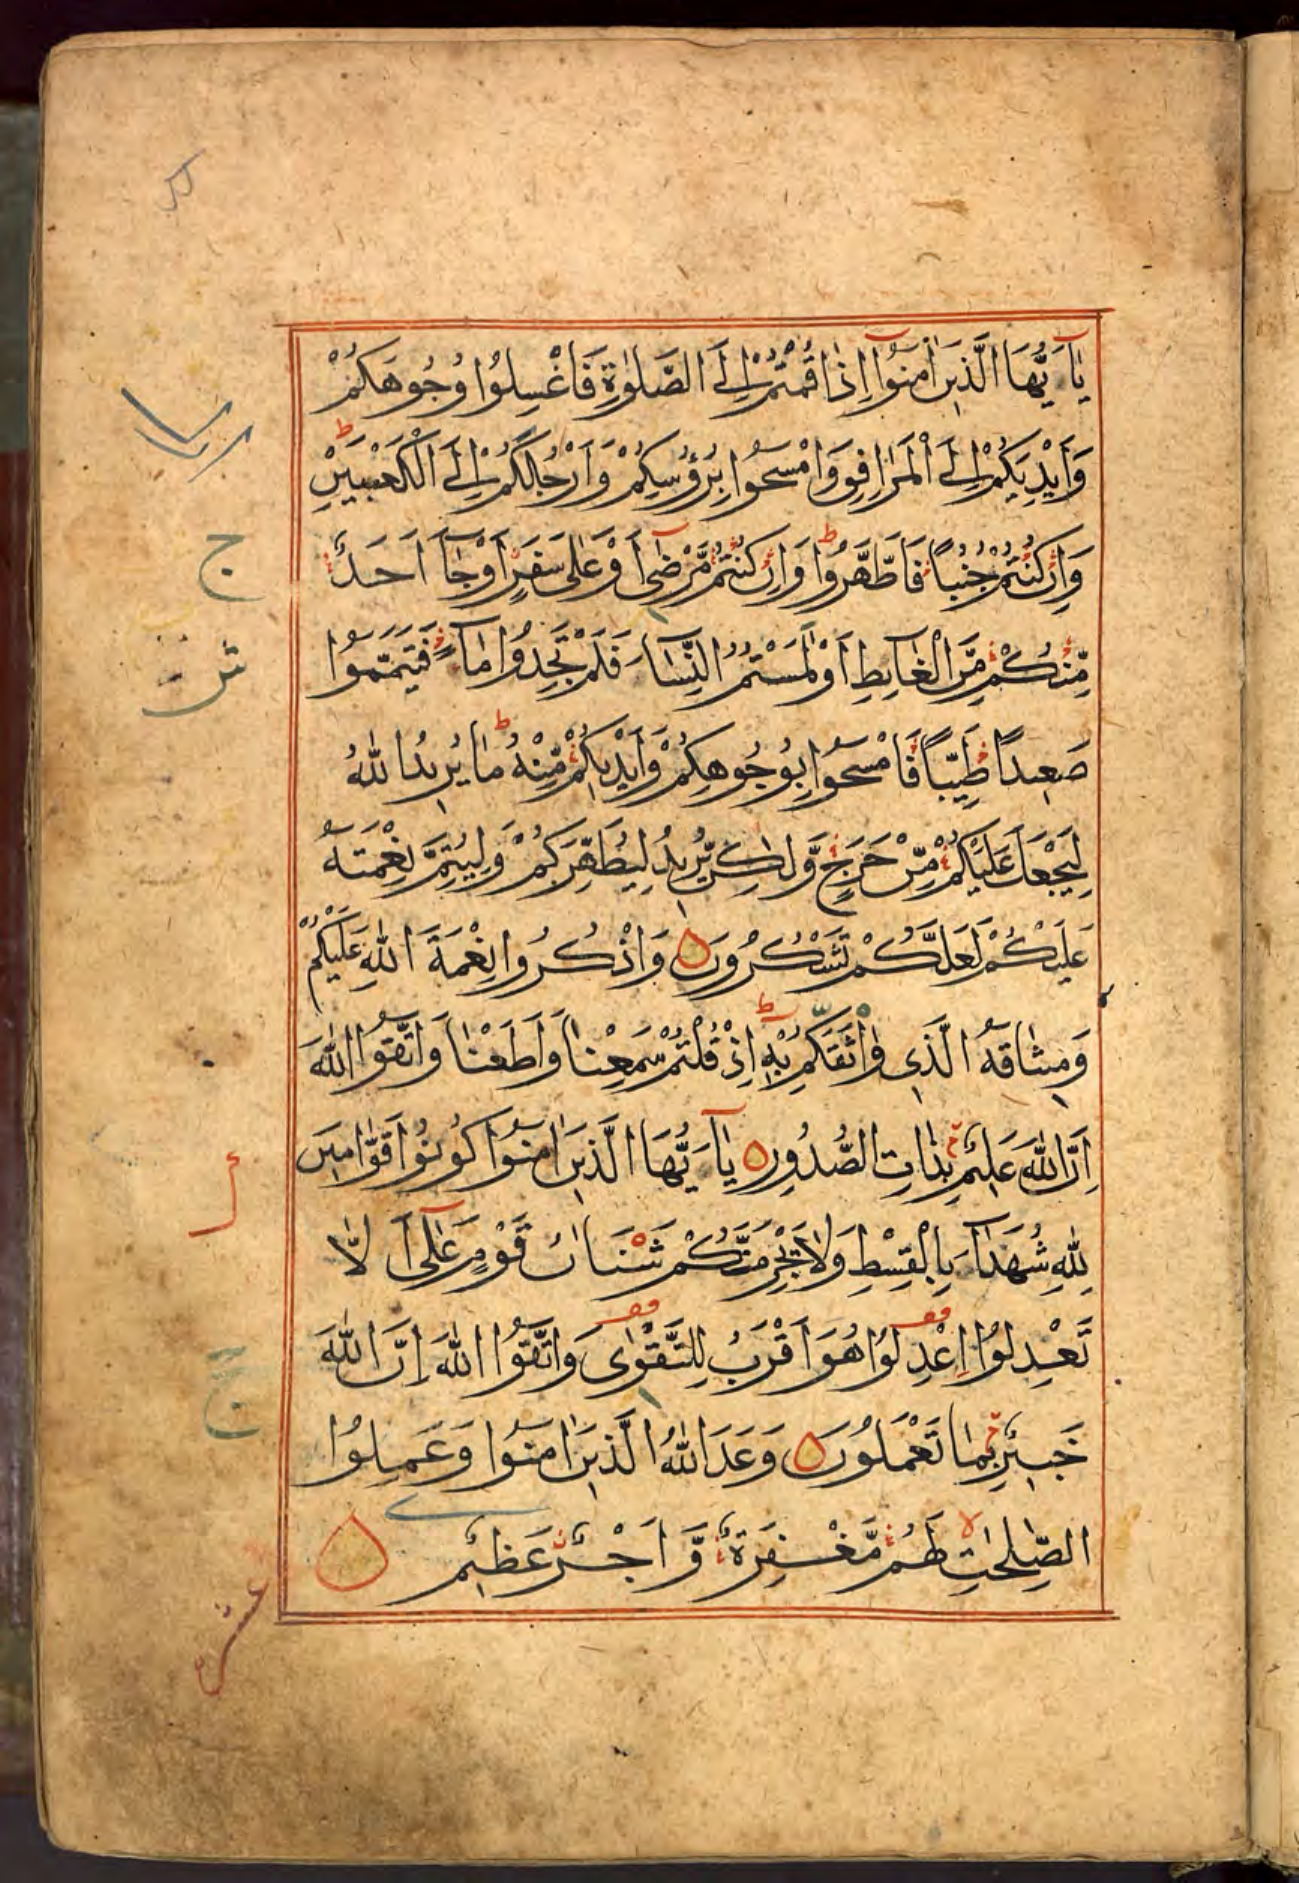 يٰٓاَيُّهَا الَّذِينَ اٰمَنُوٓا اِذَا قُمْتُمْ اِلَى الصَّلٰوةِ فَاغْسِلُوا وُجُوهَكُمْ
وَاَيْدِيَكُمْ اِلَى الْمَرَافِقِ وَامْسَحُوا بِرُؤُسِكُمْ وَاَرْجُلَكُمْ اِلَى الْكَعْبَيْنِ ط
وَاِنْ كُنْتُمْ جُنُبًا فَاطَّهَّرُوا ط وَاِنْ كُنْتُمْ مَّرْضٰٓى اَوْ عَلٰى سَفَرٍ اَوْ جَآءَ اَحَدٌ
مِّنْكُمْ مِّنَ الْغَآئِطِ اَوْ لٰمَسْتُمُ النِّسَآءَ فَلَمْ تَجِدُوا مَآءً فَتَيَمَّمُوا
صَعِيدًا طَيِّبًا فَامْسَحُوا بِوُجُوهِكُمْ وَاَيْدِيكُمْ مِّنْهُ ط مَا يُرِيدُ اللّٰهُ
لِيَجْعَلَ عَلَيْكُمْ مِّنْ حَرَجٍ وَّلٰكِنْ يُّرِيدُ لِيُطَهِّرَكُمْ وَلِيُتِمَّ نِعْمَتَهُ
عَلَيْكُمْ لَعَلَّكُمْ تَشْكُرُونَ وَاذْكُرُوا نِعْمَةَ اللّٰهِ عَلَيْكُمْ
وَمِيثَاقَهُ الَّذِي وَاثَقَكُمْ بِهِ ط اِذْ قُلْتُمْ سَمِعْنَا وَاَطَعْنَا وَاتَّقُوا اللّٰهَ
اِنَّ اللّٰهَ عَلِيمٌ بِذَاتِ الصُّدُورِ يٰٓاَيُّهَا الَّذِينَ اٰمَنُوا كُونُوا قَوَّامِينَ
لِلّٰهِ شُهَدَآءَ بِالْقِسْطِ وَلَا يَجْرِمَنَّكُمْ شَنَاٰنُ قَوْمٍ عَلٰٓى اَلَّا
تَعْدِلُوا اِعْدِلُوا هُوَ اَقْرَبُ لِلتَّقْوٰى وَاتَّقُوا اللّٰهَ اِنَّ اللّٰهَ
خَبِيرٌ بِمَا تَعْمَلُونَ وَعَدَ اللّٰهُ الَّذِينَ اٰمَنُوا وَعَمِلُوا
الصّٰلِحٰتِ لا لَهُمْ مَّغْفِرَةٌ وَّاَجْرٌ عَظِيمٌ
ج
ج
عشر